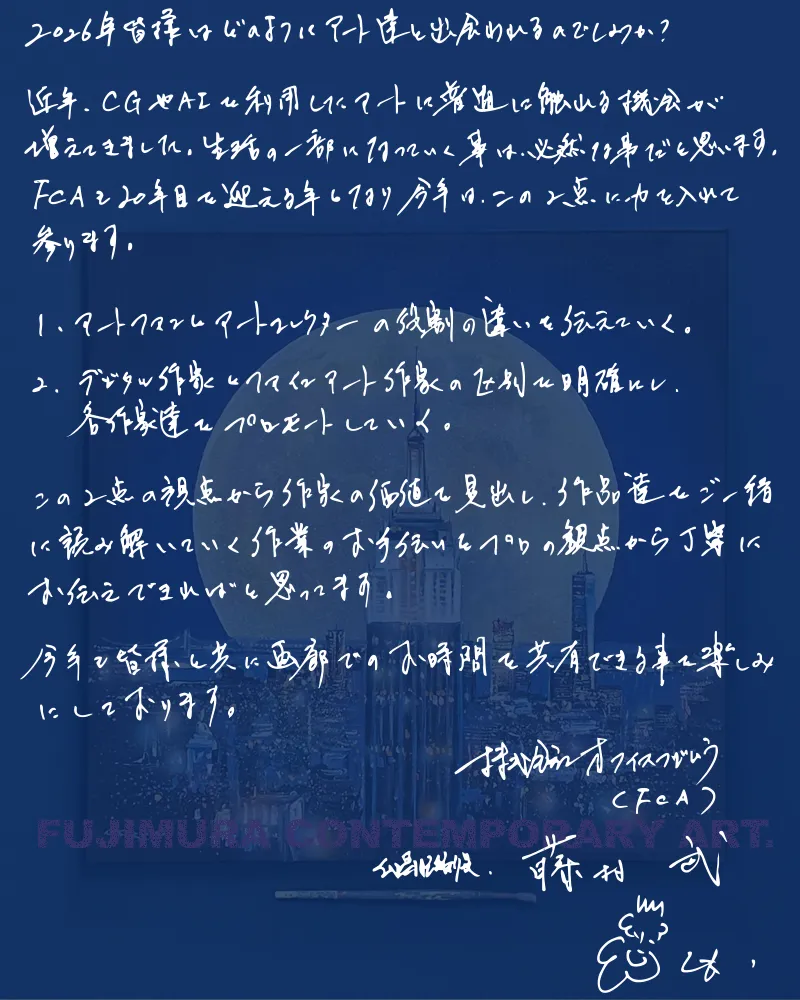 2026年皆様はどのようにアート達と出会われるのでしょうか?
近年、CGやAIを利用したアートに普通に触れる機会が
増えてきました。生活の一部になっていく事は、必然な事だと思います。
FCAも20年目を迎える年となり今年は、この2点に力を入れて
参ります。
1、アートファンとアートコレクターの役割の違いを伝えていく。
2、デジタル作家とファインアート作家の区別を明確にし、
各作家達をプロモートしていく。
この2点の視点から作家の価値を見出し、作品達をご一緒
に読み解いていく作業のお手伝いをプロの観点から丁寧に
お伝えできればと思ってます。
今年も皆様と共に画廊でのお時間を共有できる事を楽しみ
にしております。
株式会社オフィスフジムラ
(FCA)
FUJIMURA CONTEMPORARY ART.
藤村 武